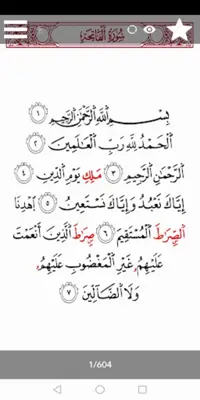 سُورَةُ الْفَاتِحَةِ
بِسْمِ اللَّهِ الرَّحْمَٰنِ الرَّحِيمِ ١
الْحَمْدُ لِلَّهِ رَبِّ الْعَالَمِينَ ٢
الرَّحْمَٰنِ الرَّحِيمِ ٣ مَلِكِ يَوْمِ الدِّينِ ٤
إِيَّاكَ نَعْبُدُ وَإِيَّاكَ نَسْتَعِينُ ٥ اهْدِنَا
الصِّرَاطَ الْمُسْتَقِيمَ ٦ صِرَاطَ الَّذِينَ أَنْعَمْتَ
عَلَيْهِمُۥ غَيْرِ الْمَغْضُوبِ عَلَيْهِمُۥ
وَلَا الضَّالِّينَ ٧
1/604